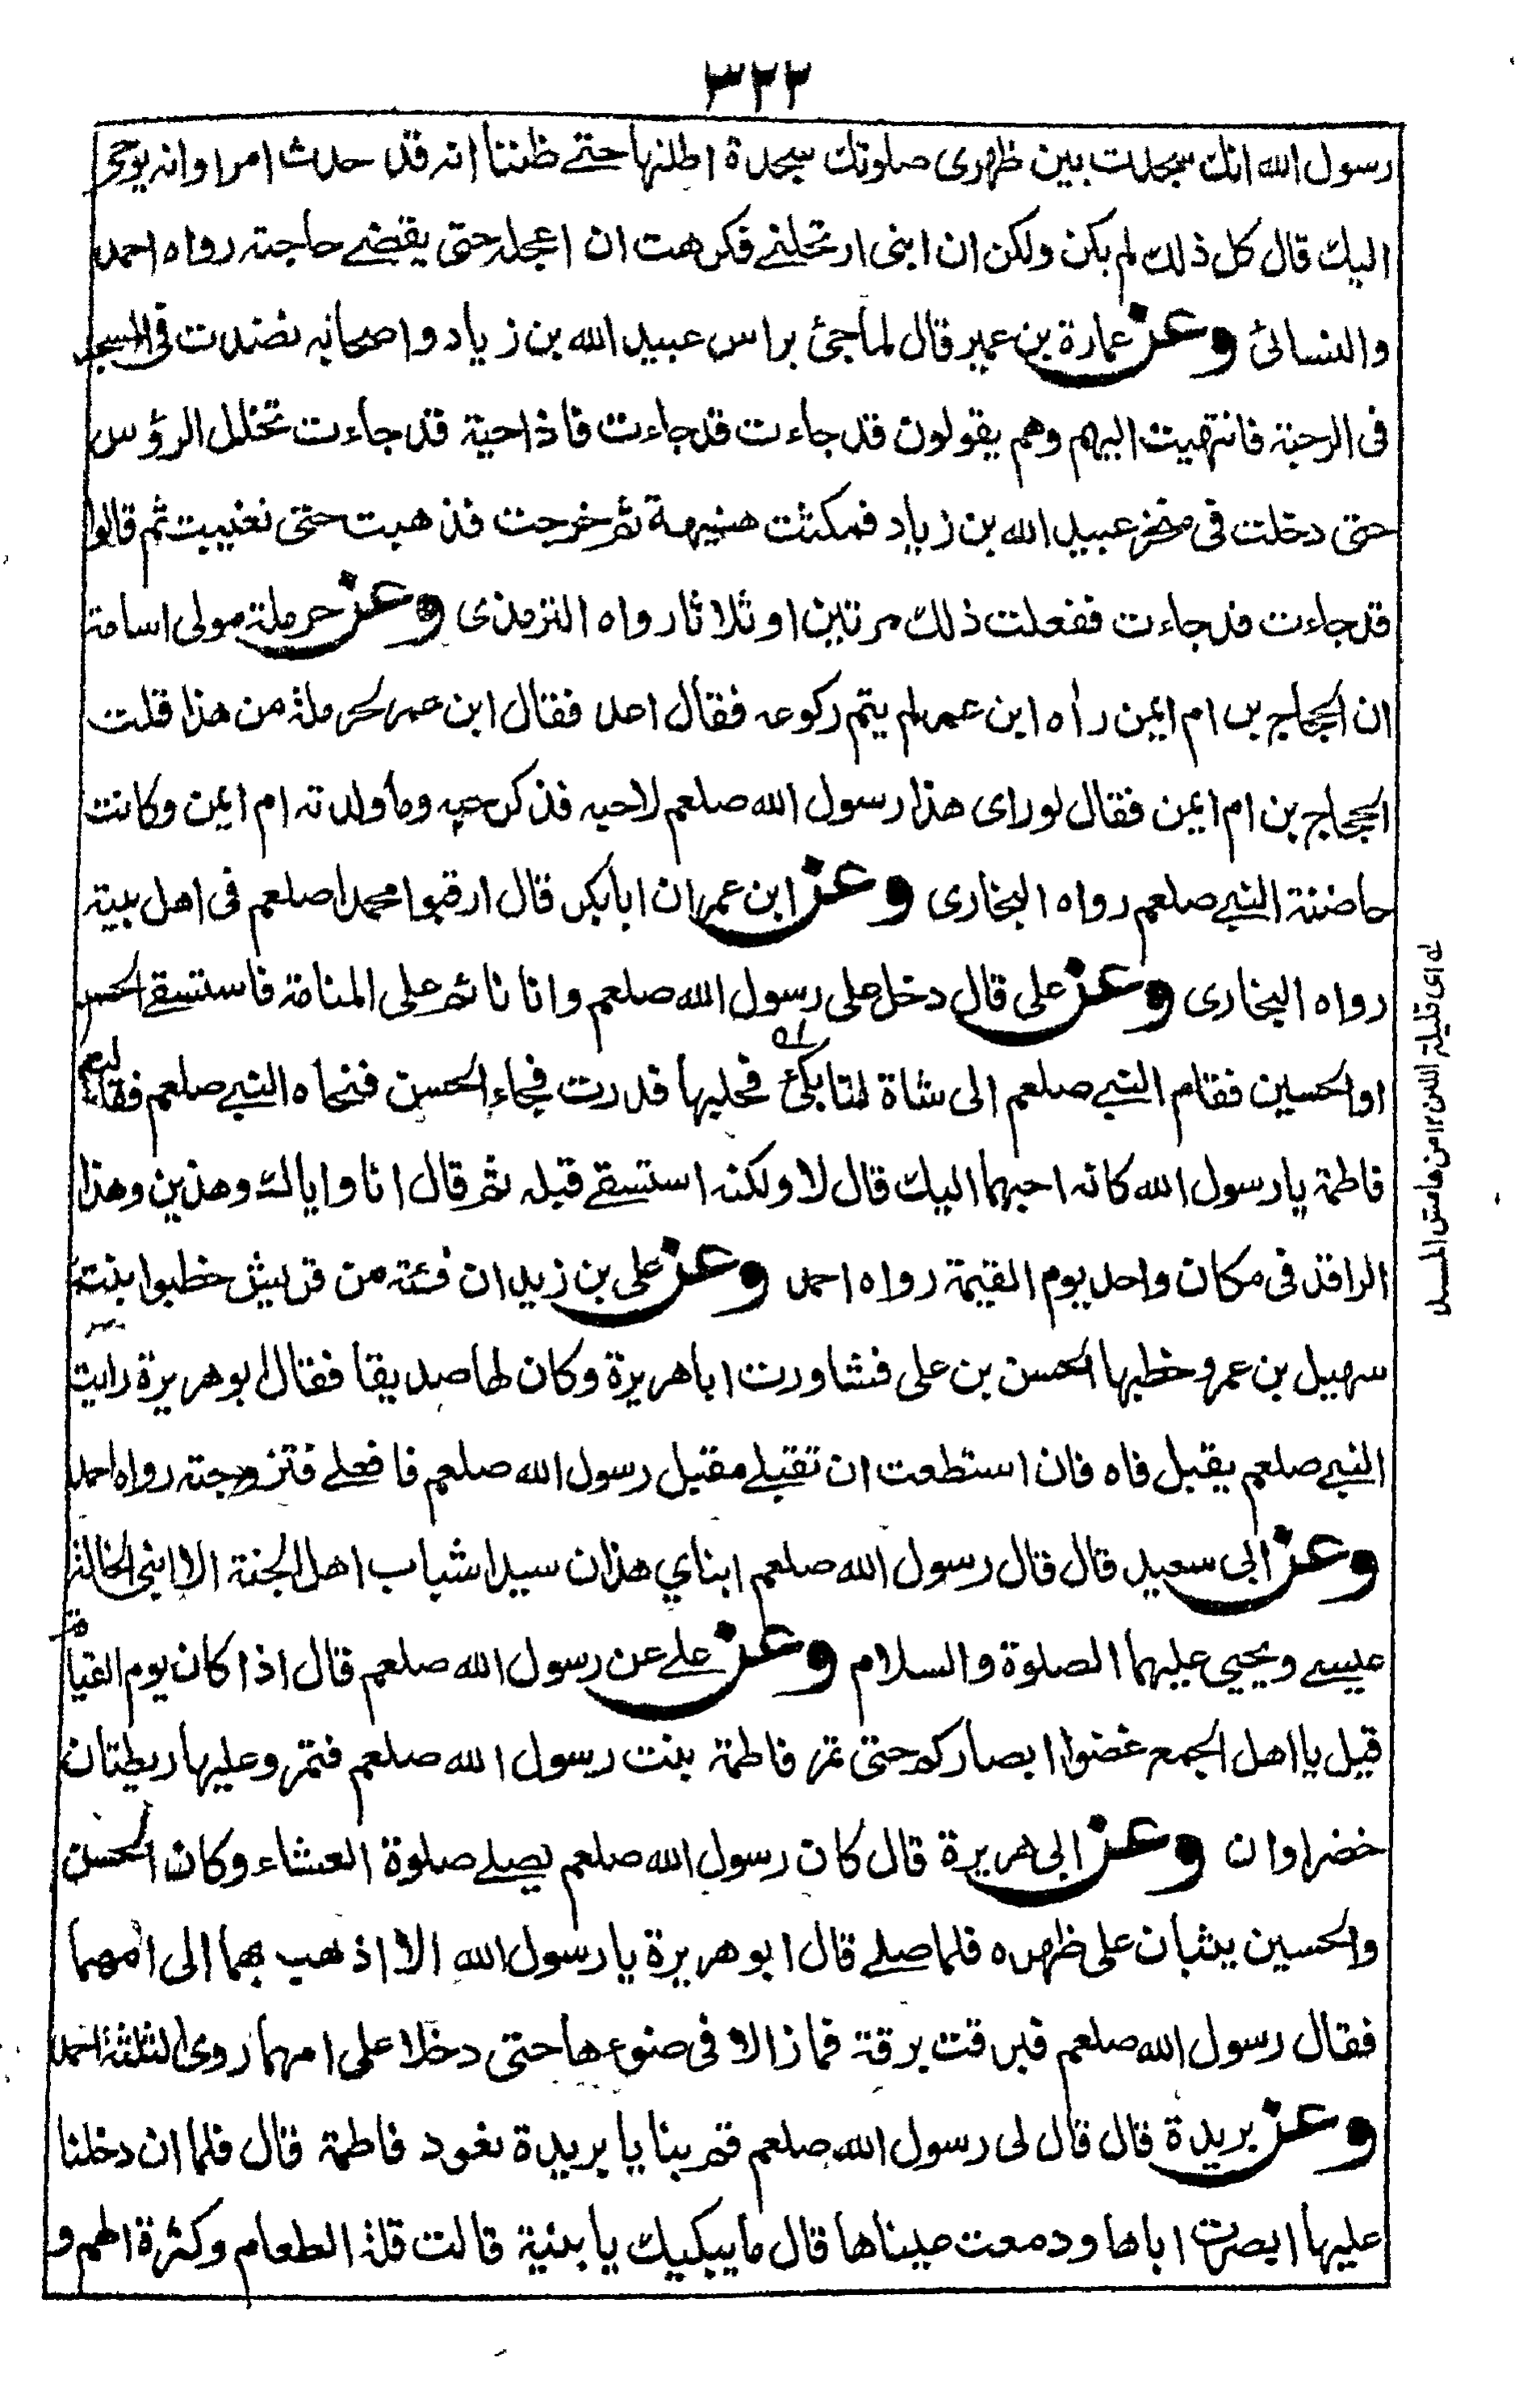 ٣٢٢
رسول الله انك سجدت بين ظهرى صلوتك سجدة اطلتها حتے ظننا انه قد حدث امر او انه يوحى
اليك قال كل ذلك لم يكن ولكن ان ابنى ارتحلنے فكرهت ان اعجله حتى يقضے حاجته رواه احمد
والنسائى وعن عمارة بن عمير قال لما جئ براس عبيد الله بن زياد واصحابه نضدت فى المسجد
فى الرحبة فانتهيت اليهم وهم يقولون قد جاءت قد جاءت فاذا حية قد جاءت تخلل الرؤس
حتى دخلت فى منخر عبيد الله بن زياد فمكثت هنيهة ثم خرجت فذهبت حتى تغيبت ثم قالوا
قد جاءت قد جاءت ففعلت ذلك مرتين او ثلاثا رواه الترمذى وعن حرملة مولى اسامة
ان الحجاج بن ام ايمن راه ابن عمر لم يتم ركوعه فقال اعد فقال ابن عمر لحرملة من هذا قلت
الحجاج بن ام ايمن فقال لو راى هذا رسول الله صلعم لاحبه فذكر حبه وما ولدته ام ايمن وكانت
حاضنة النبے صلعم رواه البخارى وعن ابن عمر ان ابا بكر قال ارقبوا محمدا صلعم فى اهل بيته
رواه البخارى وعن على قال دخل على رسول الله صلعم وانا نائم على المنامة فاستسقے الحسن
او الحسين فقام النبے صلعم الى شاة لنا بكئ فحلبها فدرت فجاء الحسن فنحاه النبے صلعم فقالت
فاطمة يا رسول الله كانه احبهما اليك قال لا ولكنه استسقے قبله ثم قال انا واياك وهذين وهذا
الراقد فى مكان واحد يوم القيمة رواه احمد وعن على بن زيد ان فئة من قريش خطبوا بنت
سهيل بن عمرو خطبها الحسن بن على فشاورت ابا هريرة وكان لها صديقا فقال ابو هريرة رايت
النبے صلعم يقبل فاه فان استطعت ان تقبلے مقبل رسول الله صلعم فافعلے فتزوجته رواه احمد
وعن ابى سعيد قال قال رسول الله صلعم ابناي هذان سيدا شباب اهل الجنة الا ابنى الخالة
عيسے ويحيي عليهما الصلوة والسلام وعن علے عن رسول الله صلعم قال اذا كان يوم القيامة
قيل يا اهل الجمع غضوا ابصاركم حتى تمر فاطمة بنت رسول الله صلعم فتمر وعليها ريطتان
خضراوان وعن ابى هريرة قال كان رسول الله صلعم يصلے صلوة العشاء وكان الحسن
والحسين يثبان على ظهره فلما صلے قال ابو هريرة يا رسول الله الا اذهب بهما الى امهما
فقال رسول الله صلعم فبرقت برقة فما زالا فى ضوءها حتى دخلا على امهما روى الثلثة احمد
وعن بريدة قال قال لى رسول الله صلعم قم بنا يا بريدة نعود فاطمة قال فلما ان دخلنا
عليها ابصرت اباها ودمعت عيناها قال ما يبكيك يا بنية قالت قلة الطعام وكثرة الهم و
له اى قليلة اللبن ١٢ من هامش المسند